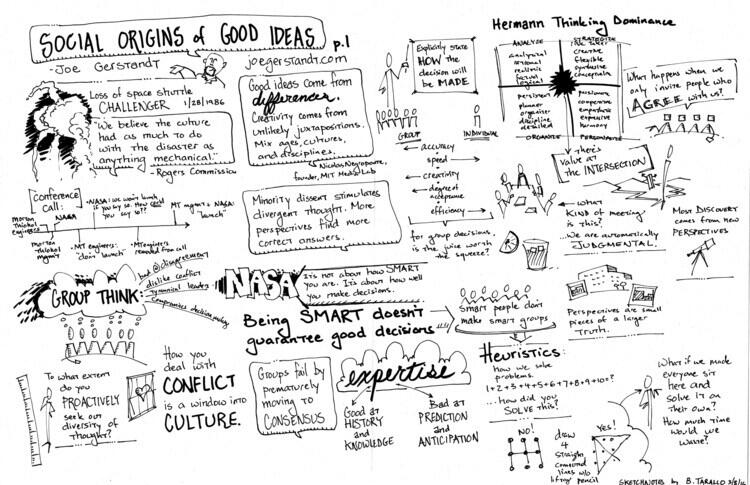 SOCIAL ORIGINS of GOOD IDEAS
p.1
-Joe Gerstandt
joegerstandt.com
Loss of space shuttle
CHALLENGER 1/28/1986
"We believe the culture
had as much to do
with the disaster as
anything mechanical."
- Rogers Commission
Good ideas come from
differences.
Creativity comes from
unlikely juxtapositions.
Mix ages, cultures,
and disciplines.
Nicholas Negroponte,
founder, MIT Media Lab
Explicitly state
HOW the
decision will
be MADE
GROUP
INDIVIDUAL
accuracy
speed
creativity
degree of
acceptance
efficiency
for group decisions,
is the juice worth
the squeeze?
Hermann Thinking Dominance
ANALYZE
analytical
rational
realistic
factual
logical
STRATEGIZE
creative
flexible
synthesize
conceptualize
persistent
planner
organizer
discipline
detailed
ORGANIZE
passionate
cooperative
empathetic
expressive
harmony
PERSONALIZE
What happens when we
only invite people who
AGREE with us?
there's
value at
the INTERSECTION
what
KIND of meeting
is this?
...We are automatically
JUDGMENTAL.
MOST DISCOVERY
comes from new
PERSPECTIVES
conference
call:
Morton
Thiokol
engineers
NASA
NASA: we won't launch
if you say so. How could
you say so??
MT mgmt & NASA:
"launch"
Morton
Thiokol
mgmt
MT engineers:
"don't launch"
MT engineers
removed from call
Minority dissent stimulates
divergent thought. More
perspectives find more
correct answers.
GROUP THINK:
bad @ disagreement
dislike conflict
tyrannical leaders
compromises decision making
NASA
It's not about how SMART
you are. It's about how well
you make decisions.
Being SMART doesn't
guarantee good decisions
Smart people don't
make smart groups
Perspectives are small
pieces of a larger
Truth.
To what extent
do you
PROACTIVELY
seek out
diversity of
thought?
How you
deal with
CONFLICT
is a window into
CULTURE.
Groups fail by
prematurely
moving to
CONSENSUS
expertise
Good at
HISTORY
and
KNOWLEDGE
Bad at
PREDICTION
and
ANTICIPATION
Heuristics:
how we solve
problems.
1+2+3+4+5+6+7+8+9+10=?
...how did you
SOLVE this?
NO!
draw
4
straight
connected
lines w/o
lifting pencil
YES!
What if we made
everyone sit
here and
solve it on
their own?
How much time
would we
waste?
SKETCHNOTES by B. TARALLO